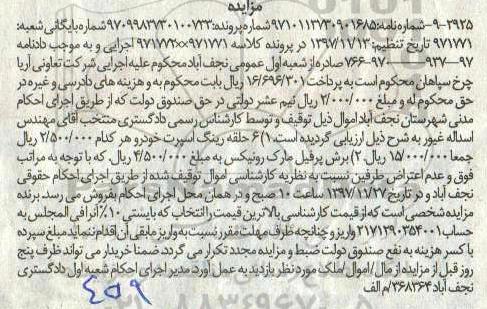 مزایده
۹-۳۹۲۵-شماره‌نامه:۹۷۱۰۱۱۳۷۳۰۹۰۱۶۸۵شماره پرونده:۹۷۰۹۹۸۳۷۳۰۱۰۰۷۳۳شماره بایگانی شعبه:
۹۷۱۷۷۱ تاریخ تنظیم: ۱۳۹۷/۱۱/۱۳ در پرونده کلاسه ۹۷۱۷۷۱××۹۷۱۷۷۲ اجرایی و به موجب دادنامه
۹۷---۹۳۷ ۹۷۰---۷۶۶ صادره از شعبه اول عمومی نجف آباد محکوم علیه اجرایی شرکت تعاونی آریا
چرخ سپاهان محکوم است به پرداخت ۱۶/۶۹۶/۳۰۱ ریال بابت محکوم به و هزینه های دادرسی و غیره در
حق محکوم له و مبلغ ۲/۰۰۰/۰۰۰ ریال نیم عشر دولتی در حق صندوق دولت که از طریق اجرای احکام
مدنی شهرستان نجف آباد اموال ذیل توقیف و توسط کارشناس رسمی دادگستری منتخب آقای مهندس
اسداله غیور به شرح ذیل ارزیابی گردیده است. ۱) ۶ حلقه رینگ اسپرت خودرو هر کدام ۲/۵۰۰/۰۰۰ ریال
جمعا ۱۵/۰۰۰/۰۰۰ ریال. ۲) برش پرفیل مارک رونیکس به مبلغ ۴/۵۰۰/۰۰۰ ریال. که با توجه به مراتب
فوق و عدم اعتراض طرفین نسبت به نظریه کارشناسی اموال توقیف شده از طریق اجرای احکام حقوقی
نجف آباد و در تاریخ ۱۳۹۷/۱۱/۲۷ ساعت ۱۰ صبح و در همان محل اجرای احکام بفروش می رسد. برنده
مزایده شخصی است که از قیمت کارشناسی بالاترین قیمت را انتخاب که بایستی ۱۰٪ آنرا فی المجلس به
حساب ۲۱۷۱۲۹۰۳۵۴۰۰۱ واریز و چنانچه ظرف مهلت مقرر نسبت به واریز مابقی آن اقدام ننماید مبلغ سپرده
با کسر هزینه به نفع صندوق دولت ضبط و مزایده مجدد تکرار می گردد. ضمنا خریدار می تواند ظرف پنج
روز قبل از مزایده از مال/ اموال/ ملک مورد نظر بازدید به عمل آورد. مدیر اجرای احکام شعبه اول دادگستری
نجف آباد ۳۶۸۳۶۴/م الف
۴۵۹